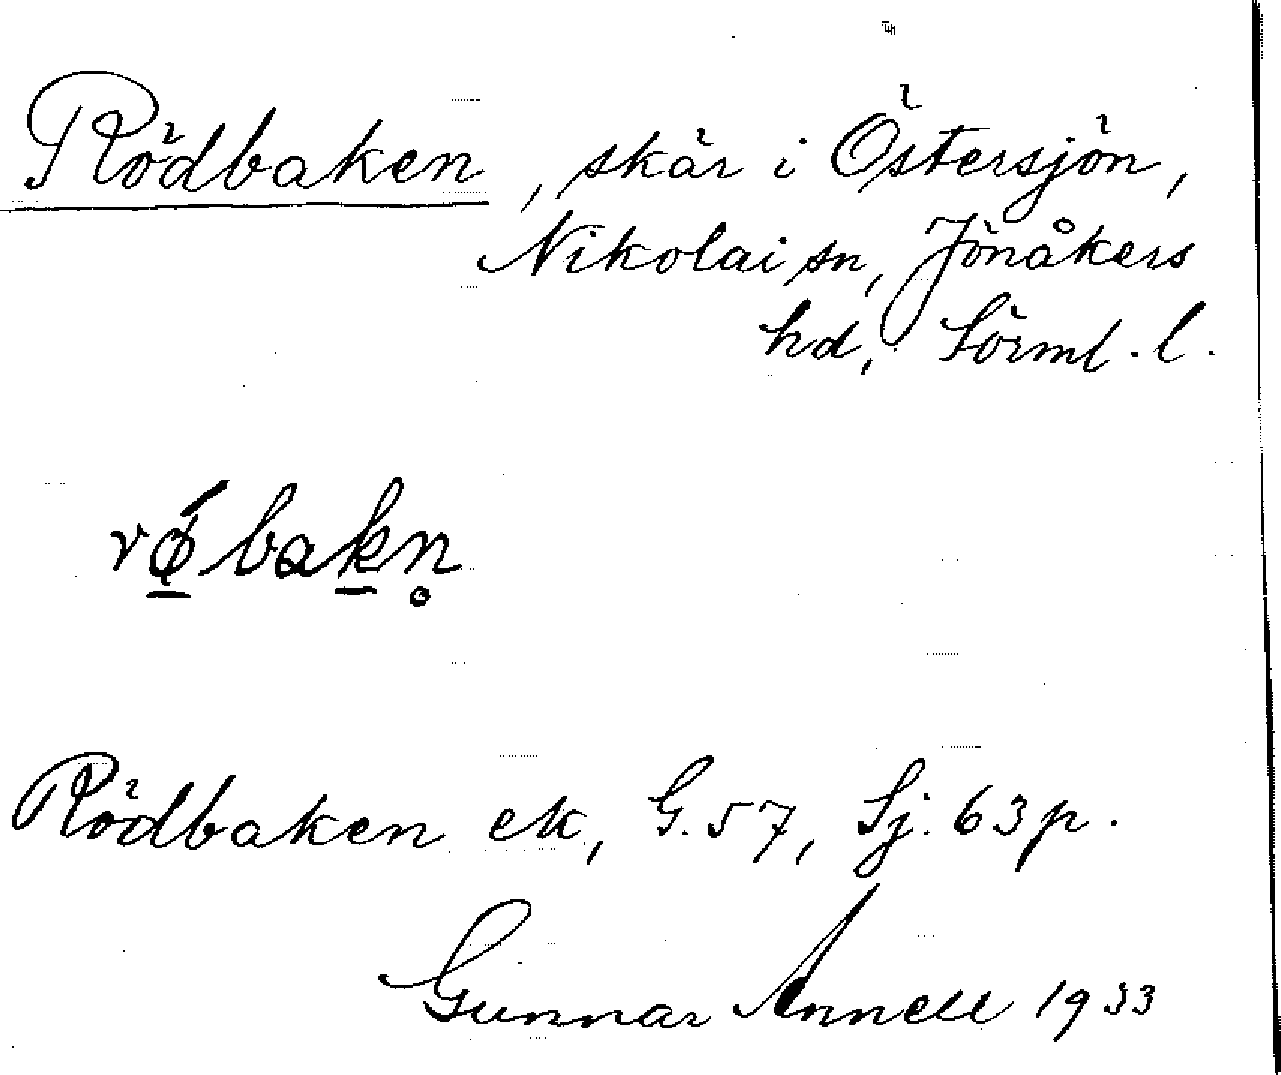 Rödbaken, skär i Östersjön,
Nikolai sn, Jönåkers
hd, Sörml. l.
rǿ̲bak̲n̥
Rödbaken ek, G. 57, Sj. 63 p.
Gunnar Annell 1933